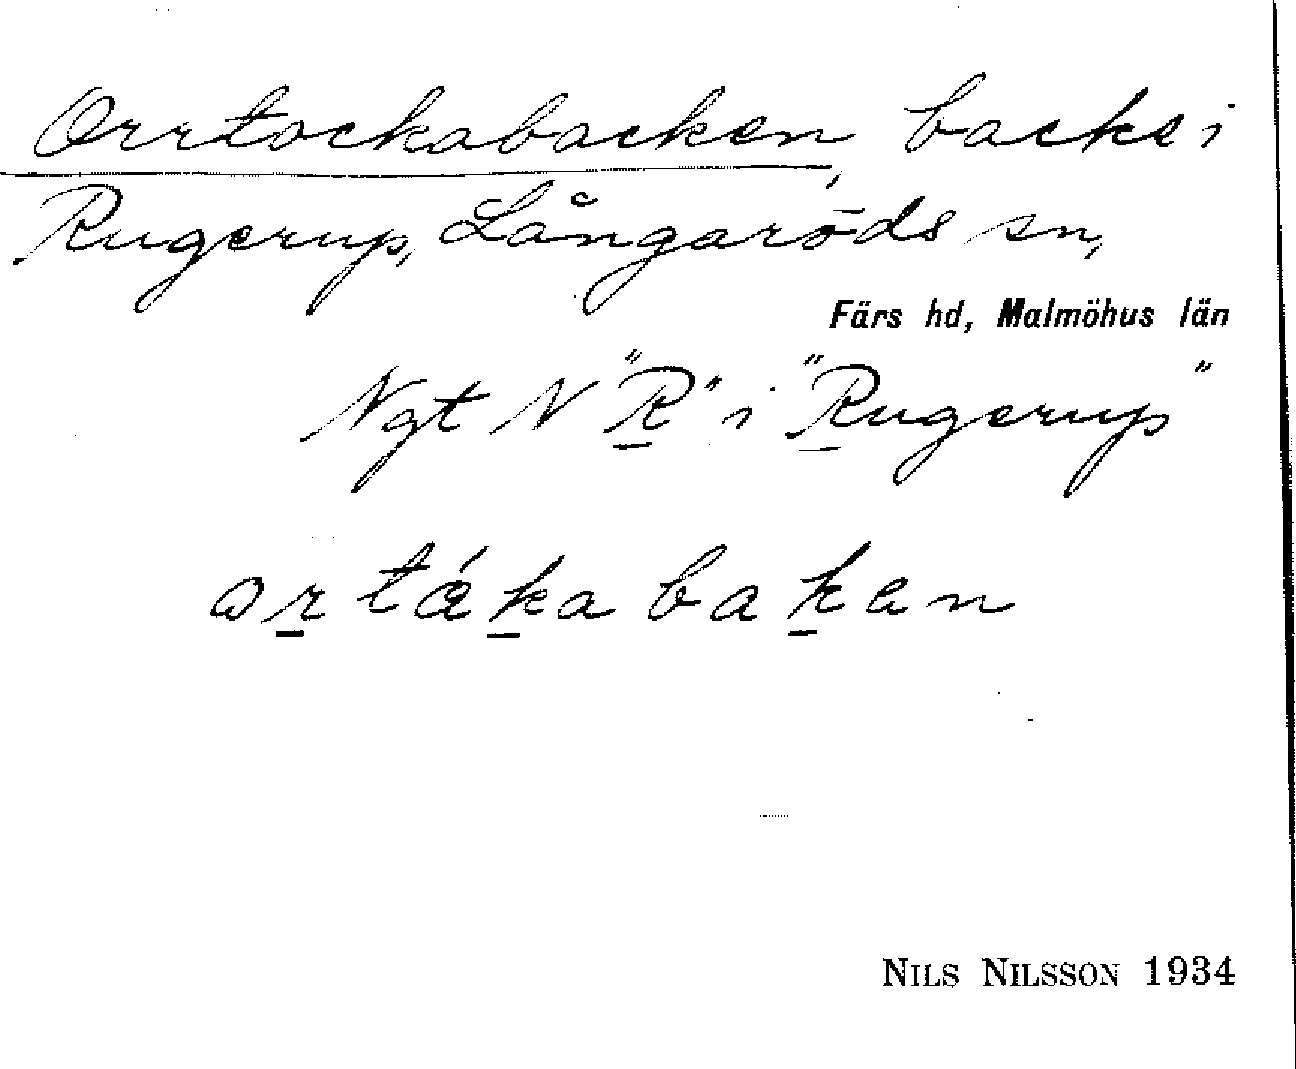 Orrtockabacken, backe i
Rugerup, Långaröds sn,
Färs hd, Malmöhus län
Ngt N "R" i "Rugerup"
ɷr tǻka baken
NILS NILSSON 1934